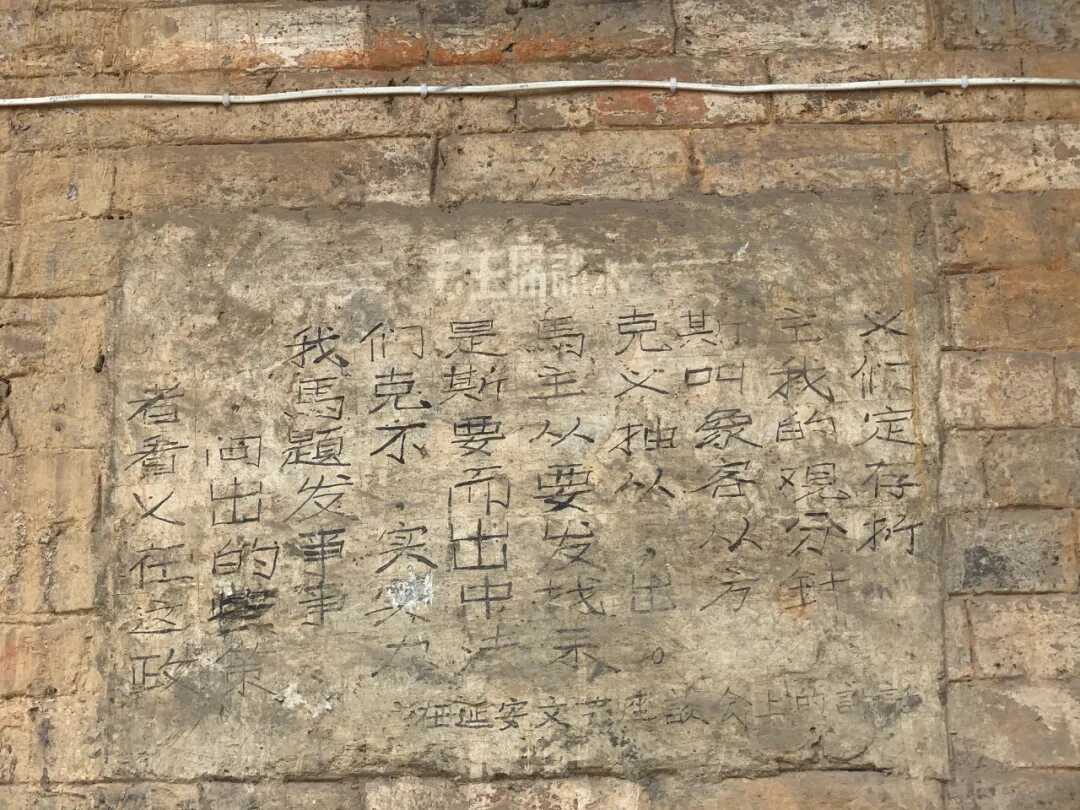 毛主席語录
我们是馬克斯主义
者，馬克斯主义叫我们
看问題不要从抽象的定
义出发，而要从客观存
在的事实出发，从分析
这些事实中找出方針
政策、办法来。
在延安文艺座談会上的講話